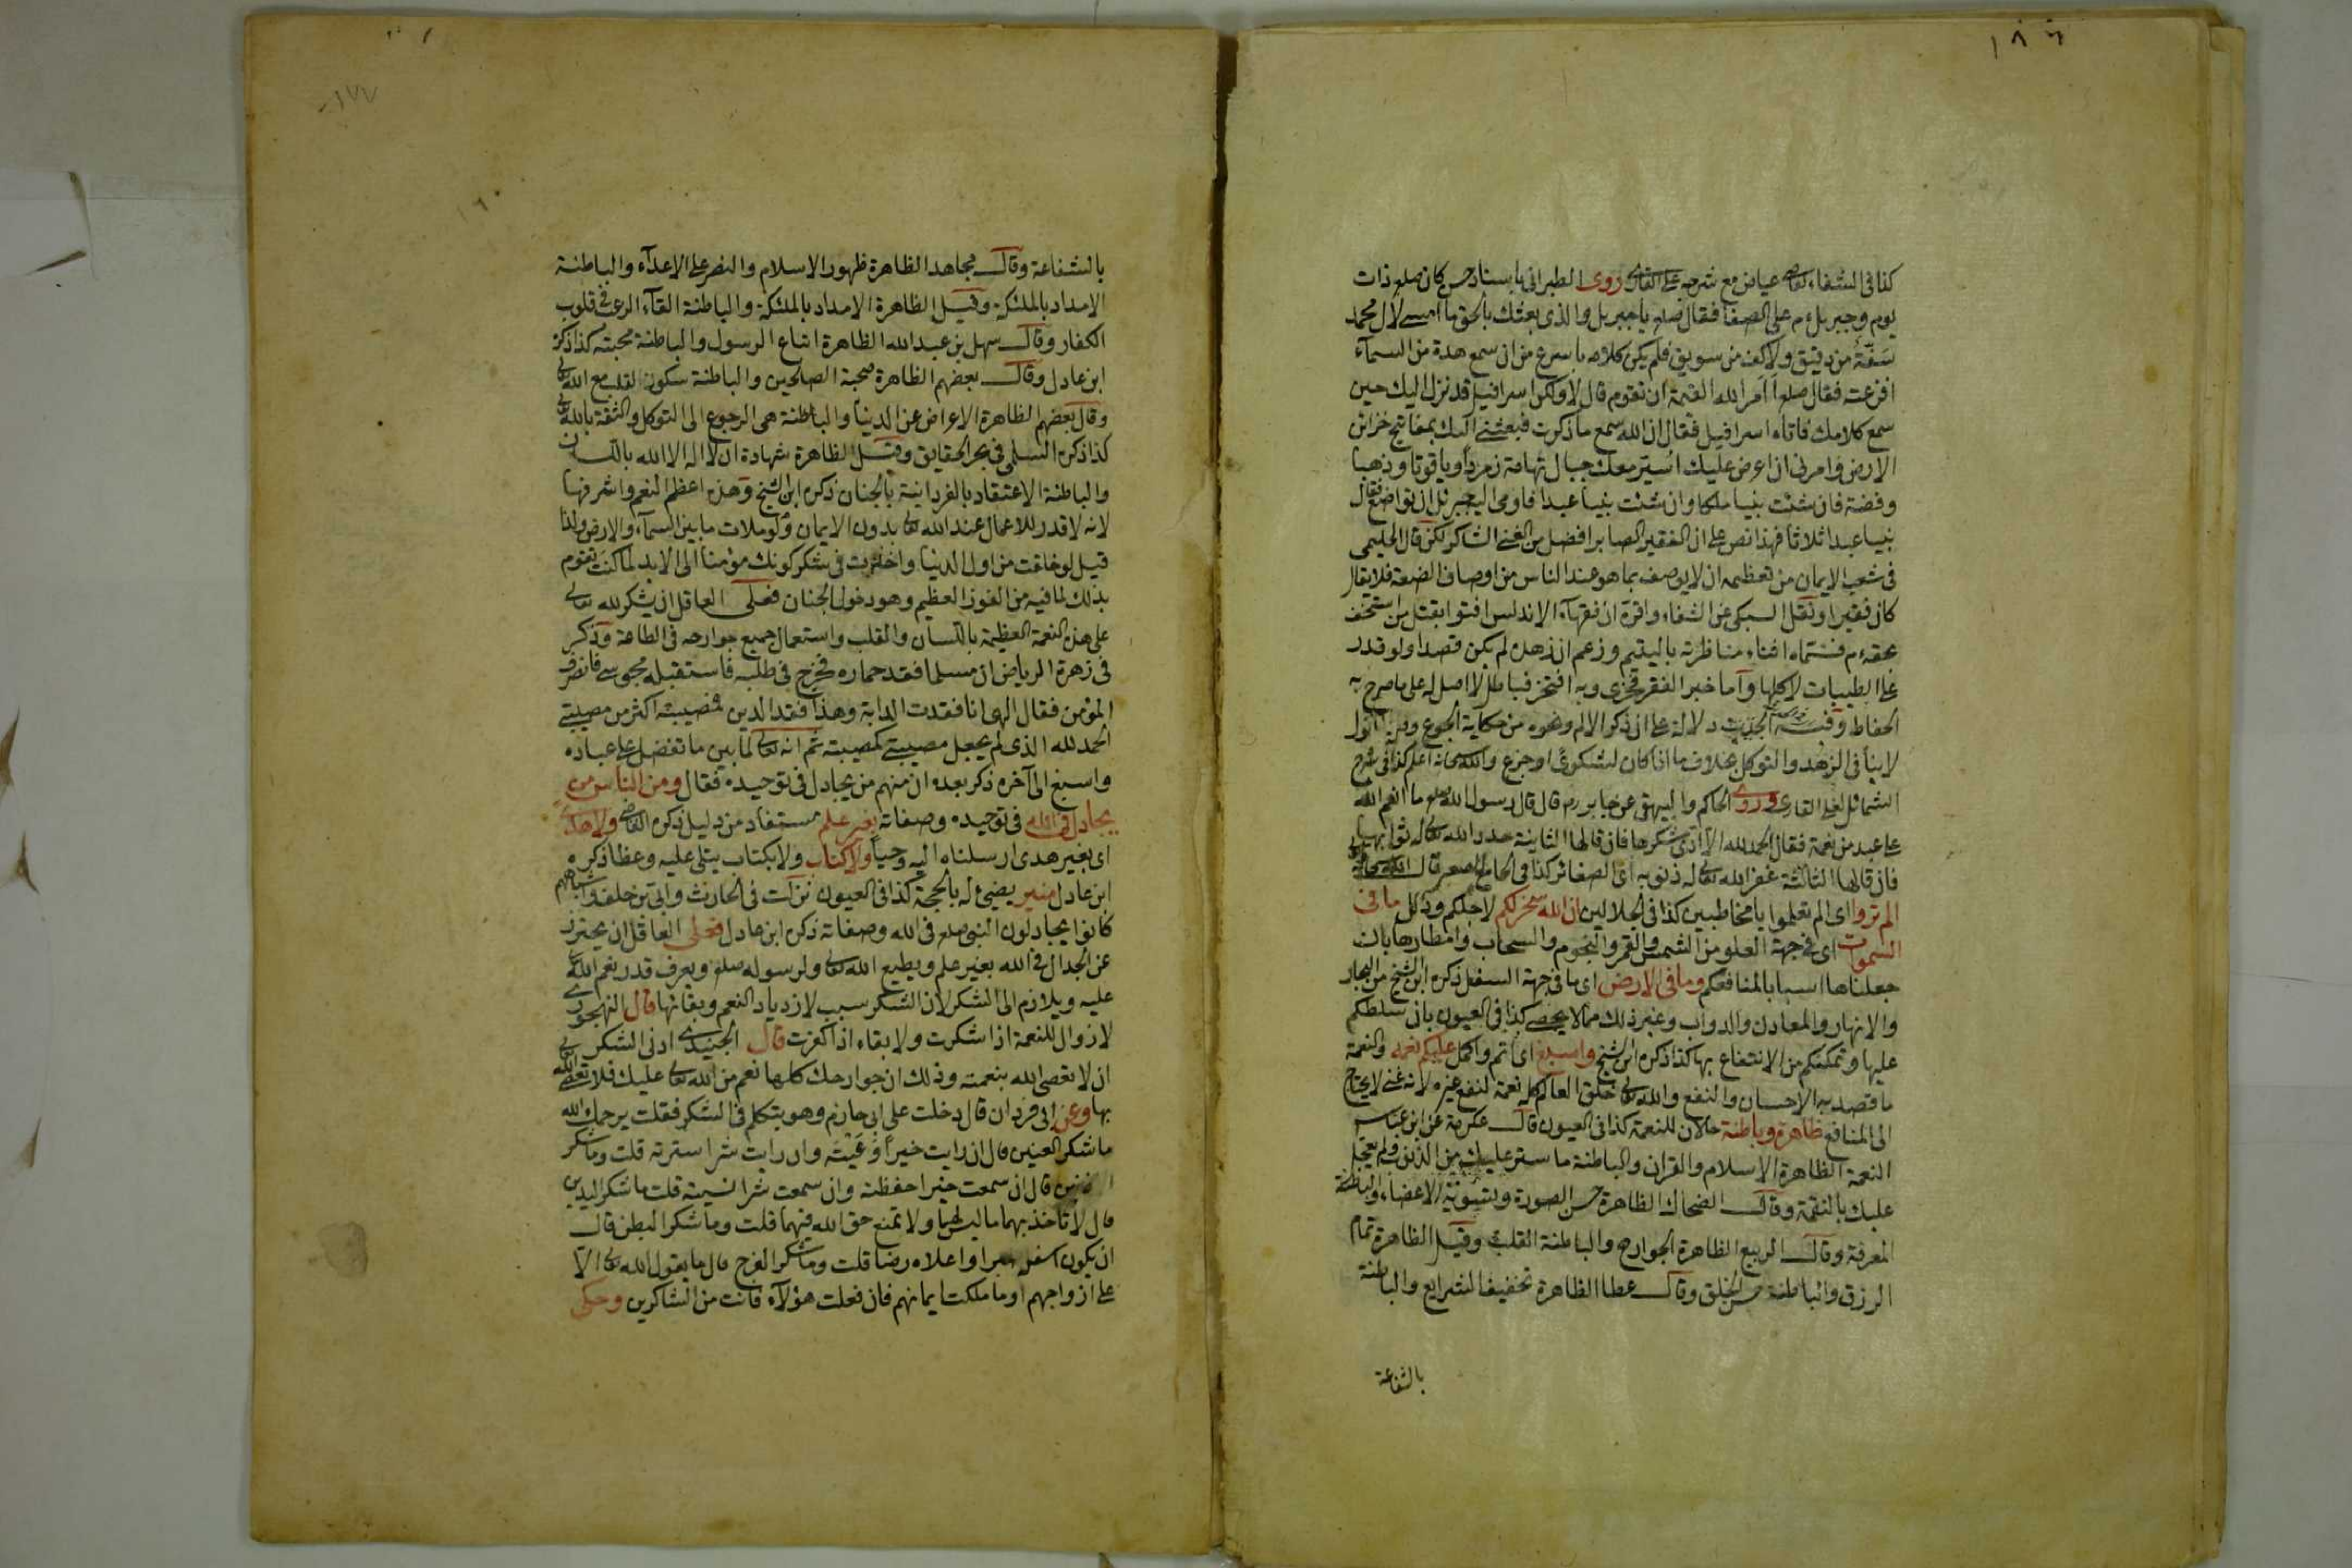 ١٨٦
كذا فى الشفاء لقاضى عياض مع شرحه على القارى روى الطبرانى باسناد حسن كان صلعم ذات
يوم وجبريل م على الصفا فقال صلعم يا جبريل والذى بعثك بالحق ما امسى لآل محمد
سَفَّةٌ من دقيق ولا كف من سويق فلم يكن كلامه باسرع من ان سمع هدة من السمآء
افزعته فقال صلعم أأمر الله القيمة ان تقوم قال لا ولكن اسرافيل قد نزل اليك حين
سمع كلامك فاتاه اسرافيل فقال ان الله سمع ما ذكرت فبعثنى اليك بمفاتيح خزائن
الارض وامرنى ان اعرض عليك اُسَيّر معك جبال تهامة زمردا وياقوتا وذهبا
وفضة فان شئت نبيا ملكا وان شئت نبيا عبدا فاومى اليه جبريل ان تواضع فقال
نبيا عبدا ثلاثا فهذا نص على ان الفقير الصابر افضل من الغنى الشاكر لكن قال الحليمى
فى شعب الايمان من تعظيمه ان لا يوصف بما هو عند الناس من اوصاف الضعة فلا يقال
كان فقيرا ونقل السبكى عن الشفاء واقره ان فقهآء الاندلس افتوا بقتل من استخف
بحقه م فسماه اثناء مناظرته باليتيم وزعم ان زهده لم يكن قصدا ولو قدر
على الطيبات لاكلها وآما خبر الفقر فخرى وبه افتخر فباطل لا اصل له على ما صرح به
الحفاظ وفى الحديث دلالة على ان ذكر الالم ونحوه من حكاية الجوع
لا ينافى الزهد والتوكل بخلاف ما اذا كان لشكوى او جزع والله سبحانه اعلم كذا فى شرح
الشمائل لعلى القارى وروى الحاكم والبيهقى عن جابر رم قال قال رسول الله صلعم ما انعم الله
على عبد من نعمة فقال الحمد لله الا ادى شكرها فان قالها الثانية جدد الله تعالى له ثوابها
فان قالها الثالثة غفر الله تعالى له ذنوبه اى الصغائر كذا فى الجامع الصغير قال الله سبحانه
الم تروا اى الم تعلموا يا مخاطبين كذا فى الجلالين ان الله سخر لكم لاجلكم وذلل ما فى
السموات اى فى جهة العلو من الشمس والقمر والنجوم والسحاب وامطارها بان
جعلناها اسبابا لمنافعكم وما فى الارض اى ما فى جهة السفل ذكره ابن الشيخ من البحار
والانهار والمعادن والدواب وغير ذلك مما لا يحصى كذا فى العيون بان سلطكم
عليها وتمكنكم من الانتفاع بها كذا ذكره ابن الشيخ واسبغ اى اتم واكمل عليكم نعمه والنعمة
ما قصد به الاحسان والنفع والله تعالى خلق العالم كله نعمة لنفع غيره لانه غنى لا يحتاج
الى المنافع ظاهرة وباطنة حالان للنعمة كذا فى العيون قال عكرمة عن ابن عباس
النعمة الظاهرة الاسلام والقران والباطنة ما ستر عليك من الذنوب ولم يعجل
عليك بالنقمة وقال الضحاك الظاهرة حسن الصورة وتسوية الاعضاء والباطنة
المعرفة وقال الربيع الظاهرة الجوارح والباطنة القلب وقيل الظاهرة تمام
الرزق والباطنة حسن الخلق وقال عطا الظاهرة تخفيف الشرايع والباطنة
بالشفاعة
١٧٧
بالشفاعة وقال مجاهد الظاهرة ظهور الاسلام والنصر على الاعدآء والباطنة
الامداد بالملئكة وقيل الظاهرة الامداد بالملئكة والباطنة القآء الرعب فى قلوب
الكفار وقال سهل بن عبد الله الظاهرة اتباع الرسول والباطنة محبته كذا ذكره
ابن عادل وقال بعضهم الظاهرة صحبة الصالحين والباطنة سكون القلب مع الله تعالى
وقال بعضهم الظاهرة الاعراض عن الدنيا والباطنة هى الرجوع الى التوكل والثقة بالله تعالى
كذا ذكره السلمى فى بحر الحقايق وقيل الظاهرة شهادة ان لا اله الا الله باللسان
والباطنة الاعتقاد بالفردانية بالجنان ذكره ابن الشيخ وهذه اعظم النعم واشرفها
لانه لا قدر للاعمال عند الله تعالى بدون الايمان ولو ملات ما بين السمآء والارض ولذا
قيل لو خلقت من اول الدنيا واخذت فى شكر كونك مؤمنا الى الابد لما كنت تقوم
بذلك لما فيه من الفوز العظيم وهو دخول الجنان فعلى العاقل ان يشكر لله تعالى
على هذه النعمة العظيمة باللسان والقلب واستعمال جميع جوارحه فى الطاعة وذكر
فى زهرة الرياض ان مسلما فقد حماره فخرج فى طلبه فاستقبله مجوسى فانصرف
المؤمن فقال الهى انا فقدت الدابة وهذا فقد الدين فمصيبته اكثر من مصيبتى
الحمد لله الذى لم يجعل مصيبتى كمصيبته ثم انه تعالى لما بين ما تفضل على عباده
واسبغ الى آخره ذكر بعده ان منهم من يجادل فى توحيده فقال ومن الناس من
يجادل فى الله فى توحيده وصفاته بغير علم مستفاد من دليل ذكره القاضى ولا هدى
اى بغير هدى ارسلناه اليه وحيا ولا كتاب ولا بكتاب يتلى عليه وعظا ذكره
ابن عادل منير يضئ له بالحجة كذا فى العيون نزلت فى الحارث وابى بن خلف واشباههم
كانوا يجادلون النبى صلعم فى الله وصفاته ذكره ابن عادل فعلى العاقل ان يحترز
عن الجدال فى الله بغير علم ويطيع الله تعالى ولرسوله صلعم ويعرف قدر نعم الله تعالى
عليه ويلازم الى الشكر لان الشكر سبب لازدياد النعم وبقائها قال النهرجورى
لا زوال للنعمة اذا شكرت ولا بقاء اذا كفرت قال الجنيدى ادنى الشكر
ان لا تعصى الله بنعمته وذلك ان جوارحك كلها نعم من الله تعالى عليك فلا تعصى الله تعالى
بها وعن ابى فردان قال دخلت على ابى حازم وهو يتكلم فى الشكر فقلت يرحمك الله
ما شكر العينين قال ان رايت خيرا وَعَيْتَه وان رايت شرا سترته قلت وما شكر
الاذنين قال ان سمعت خيرا حفظته وان سمعت شرا نسيته قلت ما شكر اليدين
قال لا تاخذ بهما ما ليس لهما ولا تمنع حق الله فيهما قلت وما شكر البطن قال
ان يكون اسفله صبرا واعلاه رضا قلت وما شكر الفرج قال ما يقول الله تعالى الا
على ازواجهم او ما ملكت ايمانهم فان فعلت هؤلآء فانت من الشاكرين وحكى